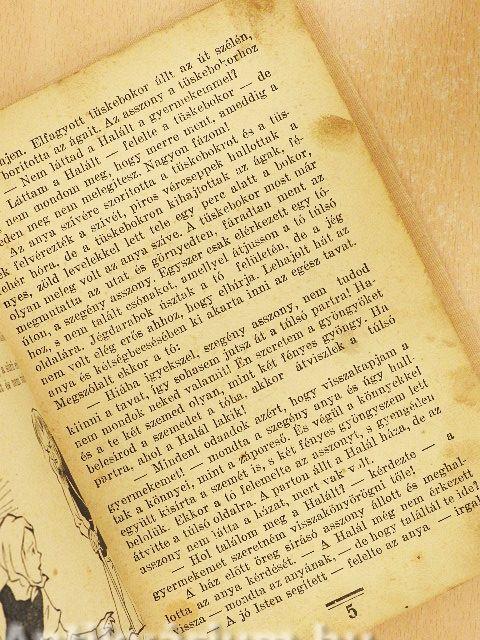 ajen. Elfagyott tüskebokor állt az út szélén,
borította az ágait. Az asszony a tüskebokorhoz
— Nem láttad a Halált a gyermekemmel?
Láttam a Halált — felelte a tüskebokor — de
nem mondom meg, hogy merre ment, ameddig a
eden meg nem melegítesz. Nagyon fázom!
Az anya szivére szorította a tüskebokrot és a tüs-
ek felvérezték a szivét, piros vércseppek hullottak a
ehér hóra, de a tüskebokron kihajtottak az ágak, fé-
nyes, zöld levelekkel lett tele egy perc alatt a bokor,
olyan meleg volt az anya szive. A tüskebokor most már
megmutatta az utat és görnyedten, fáradtan ment az
úton, a szegény asszony. Egyszer csak elérkezett egy tó-
hoz, s nem talált csónakot, amellyel átjusson a tó túlsó
oldalára. Jégdarabok úsztak a tó felületén, de a jég
nem volt elég erős ahhoz, hogy elbírja. Lehajolt hát az
anya és kétségbeesésében ki akarta inni az egész tavat.
Megszólalt ekkor a tó:
— Hiába igyekszel, szegény asszony, nem tudod
kiinni a tavat, így sohasem jutsz át a túlsó partra! Ha-
nem mondok neked valamit! Én szeretem a gyöngyöket
és a te két szemed olyan, mint két fényes gyöngy. Ha
belesírod a szemedet a tóba, akkor átviszlek a túlsó
partra, ahol a Halál lakik!
— Mindent odaadok azért, hogy visszakapjam a
gyermekemet! — mondta a szegény anya és úgy hull-
tak a könnyei, mint a záporeső. És végül a könnyekkel
együtt kisírta a szemét is, s két fényes gyöngyszem lett
belőlük. Ekkor a tó felemelte az asszonyt, s gyengéden
átvitte a túlsó oldalra. A parton állt a Halál háza, de az
asszony nem látta a házat, mert vak volt.
— Hol találom meg a Halált? — kérdezte — a
gyermekemet szeretném visszakönyörögni tőle!
A ház előtt öreg sírásó asszony állott és meghal-
lotta az anya kérdését. — A Halál még nem érkezett
vissza — mondta az anyának, — de hogy találtál te ide?
A jó Isten segített — felelte az anya — irgal
5